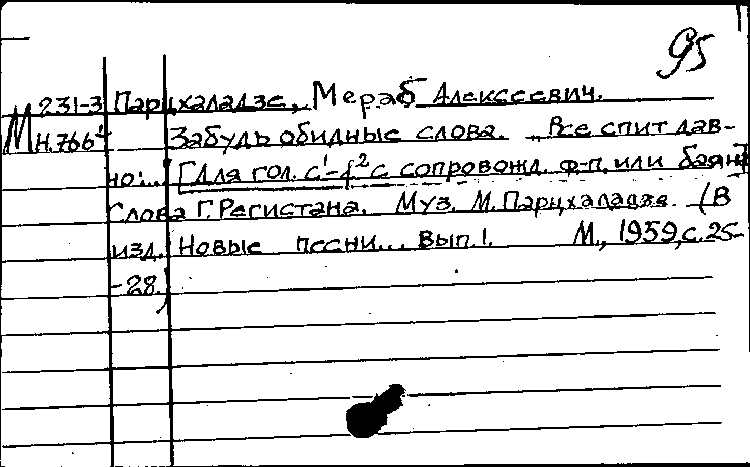 95
М 231-3 Парцхаладзе, Мераб Алексеевич.
Н.766 Забудь обидные слова. "Все спит дав-
но:... [Для гол. c¹-f² с сопровожд. ф-п. или баяна]
Слова Г. Регистана. Муз. М. Парцхаладзе. (В
изд. Новые песни... Вып. 1. М., 1959, с. 25-
-28.)